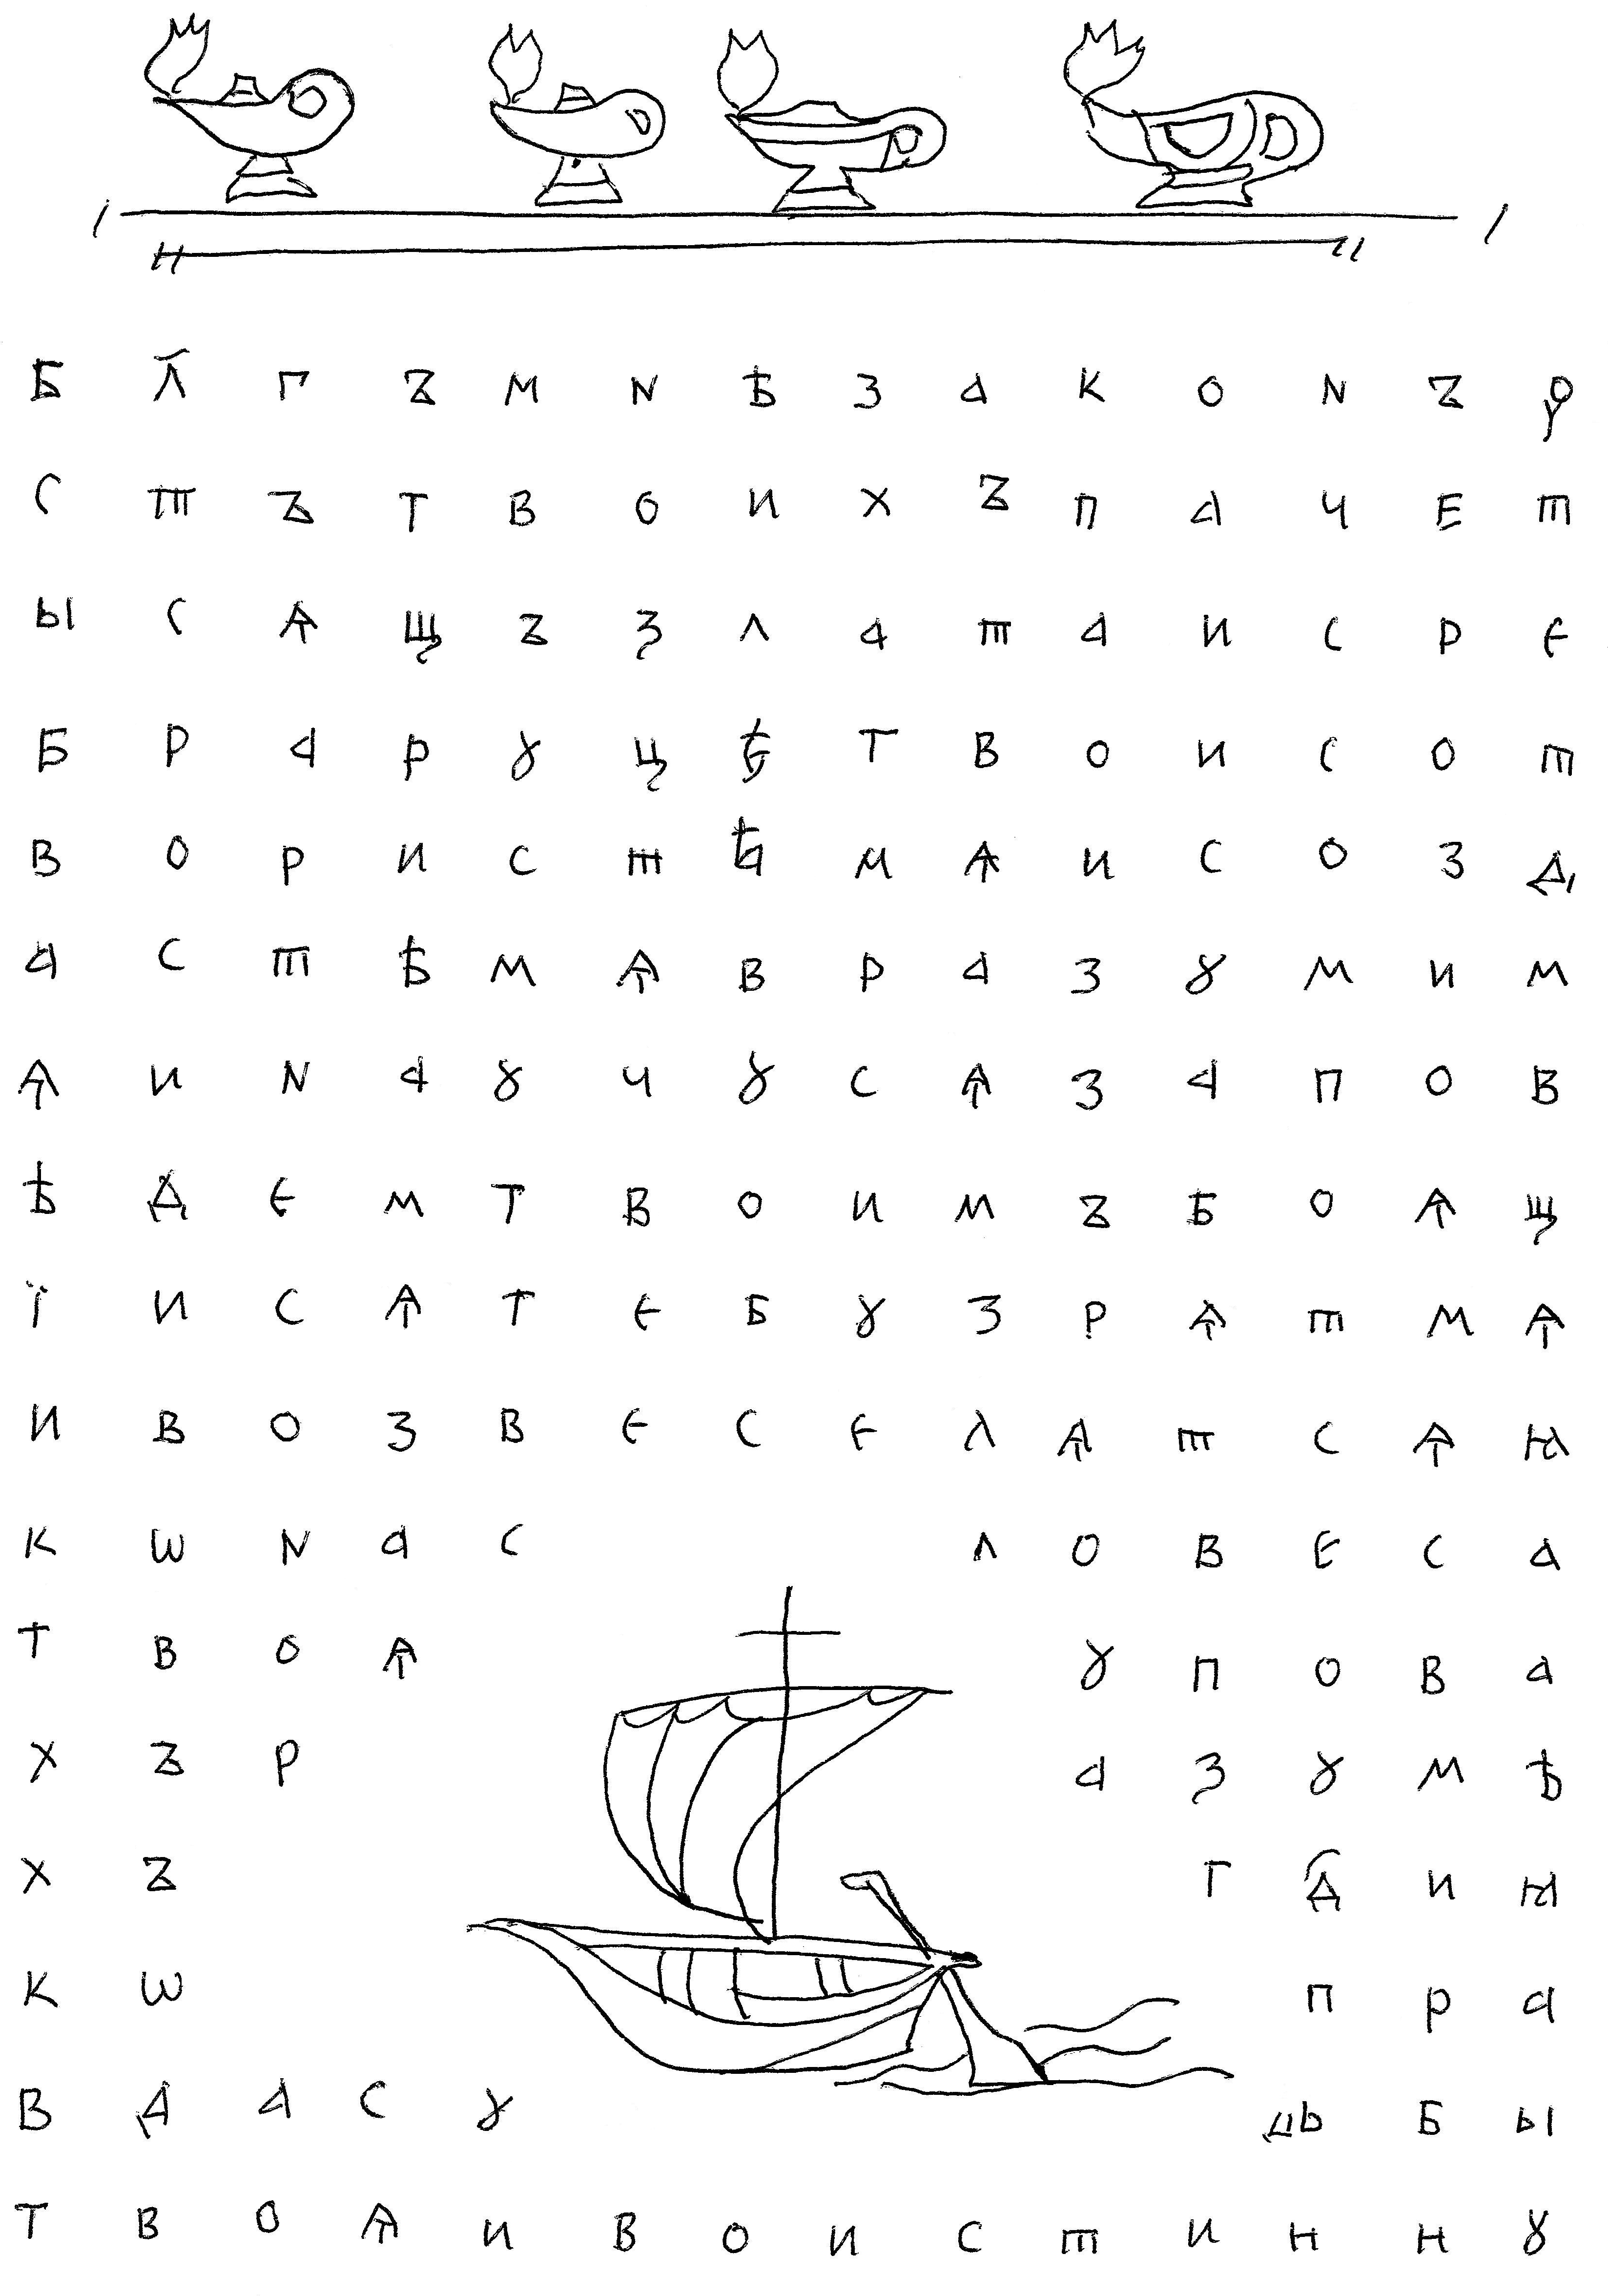 Б Л҃ Г Ꙁ М N Ѣ З А К О N Ꙁ Ꙋ
С Т Ꙁ Т В О И Х Ꙁ П А Ч Е Т
Ы С Ѧ Щ Ꙁ З Л А Т А И С Р Е
Б Р А Р Ꙋ Ц Ѣ Т В О И С О Т
В О Р И С Т Ѣ М Ѧ И С О З Д
А С Т Ѣ М Ѧ В Р А З Ꙋ М И М
Ѧ И N А Ꙋ Ч Ꙋ С Ѧ З А П О В
Ѣ Д Е М Т В О И М Ꙁ Б О Ѧ Щ
Ї И С Ѧ Т Е Б Ꙋ З Р Ѧ Т М Ѧ
И В О З В Е С Е Л Ѧ Т С Ѧ Ꙗ
К Ѡ N А С Л О В Е С А
Т В О Ѧ Ꙋ П О В А
Х Ꙁ Р А З Ꙋ М Ѣ
Х Ꙁ Г Д҃ И Ꙗ
К Ѡ П Р А
В Д А С Ꙋ ДЬ Б Ы
Т В О Ѧ И В О И С Т И Н Н Ꙋ